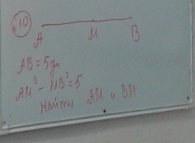 10
A M B
AB = 5 дм
AM² - MB² = 5
Найти AM и BM